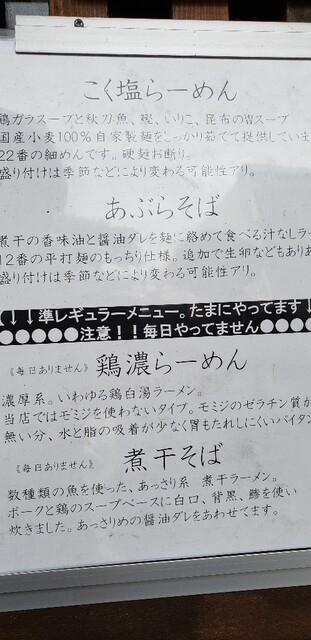 こく塩らーめん
鶏ガラスープと秋刀魚、鰹、いりこ、昆布のWスープ
国産小麦100%自家製麺をしっかり茹でて提供していま
22番の細めんです。硬麺お断り。
盛り付けは季節などにより変わる可能性アリ。
あぶらそば
煮干の香味油と醤油ダレを麺に絡めて食べる汁なしラー
12番の平打麺のもっちり仕様。追加で生卵などもありま
盛り付けは季節などにより変わる可能性アリ。
↓↓準レギュラーメニュー。たまにやってます↓
●●●●●注意!!毎日やってません●●●●●
《毎日ありません》鶏濃らーめん
濃厚系。いわゆる鶏白湯ラーメン。
当店ではモミジを使わないタイプ。モミジのゼラチン質が
無い分、水と脂の吸着が少なく胃もたれしにくいパイタン
《毎日ありません》煮干そば
数種類の魚を使った、あっさり系 煮干ラーメン。
ポークと鶏のスープベースに白口、背黒、鯵を使い
炊きました。あっさりめの醤油ダレをあわせてます。